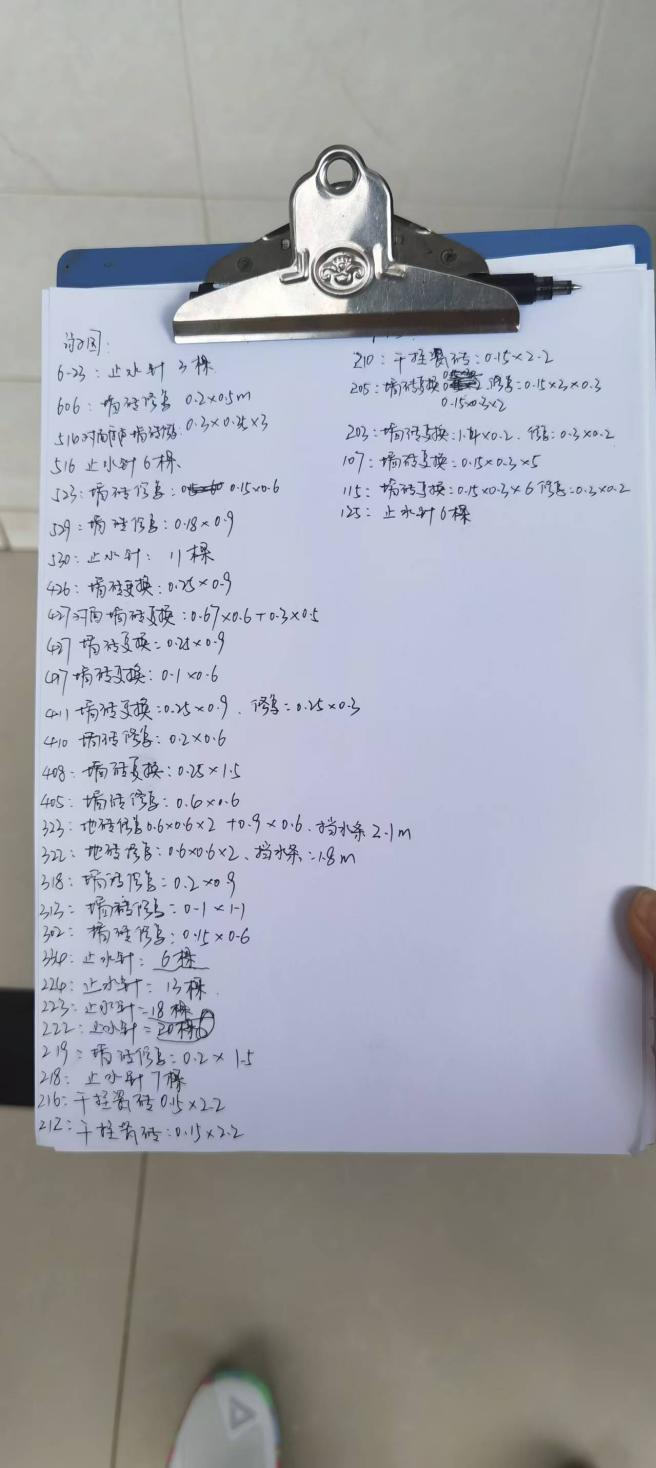 6-23：止水针 3棵
606：墙砖修复 0.2×0.5m
516对面 墙砖修复 0.3×0.25×3
516 止水针 6棵
523：墙砖修复：0.15×0.6
529：墙砖修复：0.18×0.9
530：止水针：11棵
426：墙砖更换：0.25×0.9
427对面墙砖更换：0.67×0.6+0.3×0.5
427 墙砖更换：0.25×0.9
墙砖更换：0.1×0.6
411 墙砖更换：0.25×0.9、修复：0.25×0.3
410 墙砖修复：0.2×0.6
408：墙砖更换：0.25×1.5
405：墙砖修复：0.6×0.6
323：地砖修复0.6×0.6×2 +0.9×0.6、挡水条2.1m
322：地砖修复：0.6×0.6×2、挡水条：1.8m
318：墙砖修复：0.2×0.9
313：墙砖修复：0.1×1.1
302：墙砖修复：0.15×0.6
止水针：6棵
224：止水针：13棵
223：止水针：18棵
222：止水针：20棵
219：墙砖修复：0.2×1.5
218：止水针7棵
216：干挂瓷砖0.15×2.2
212：干挂瓷砖：0.15×2.2
210：干挂瓷砖：0.15×2.2
205：墙砖更换 修复：0.15×3×0.3
0.15×0.3×2
203：墙砖更换：1.4×0.2、修复：0.3×0.2
107：墙砖更换：0.15×0.3×5
115：墙砖更换：0.15×0.3×6 修复：0.3×0.2
125：止水针6棵